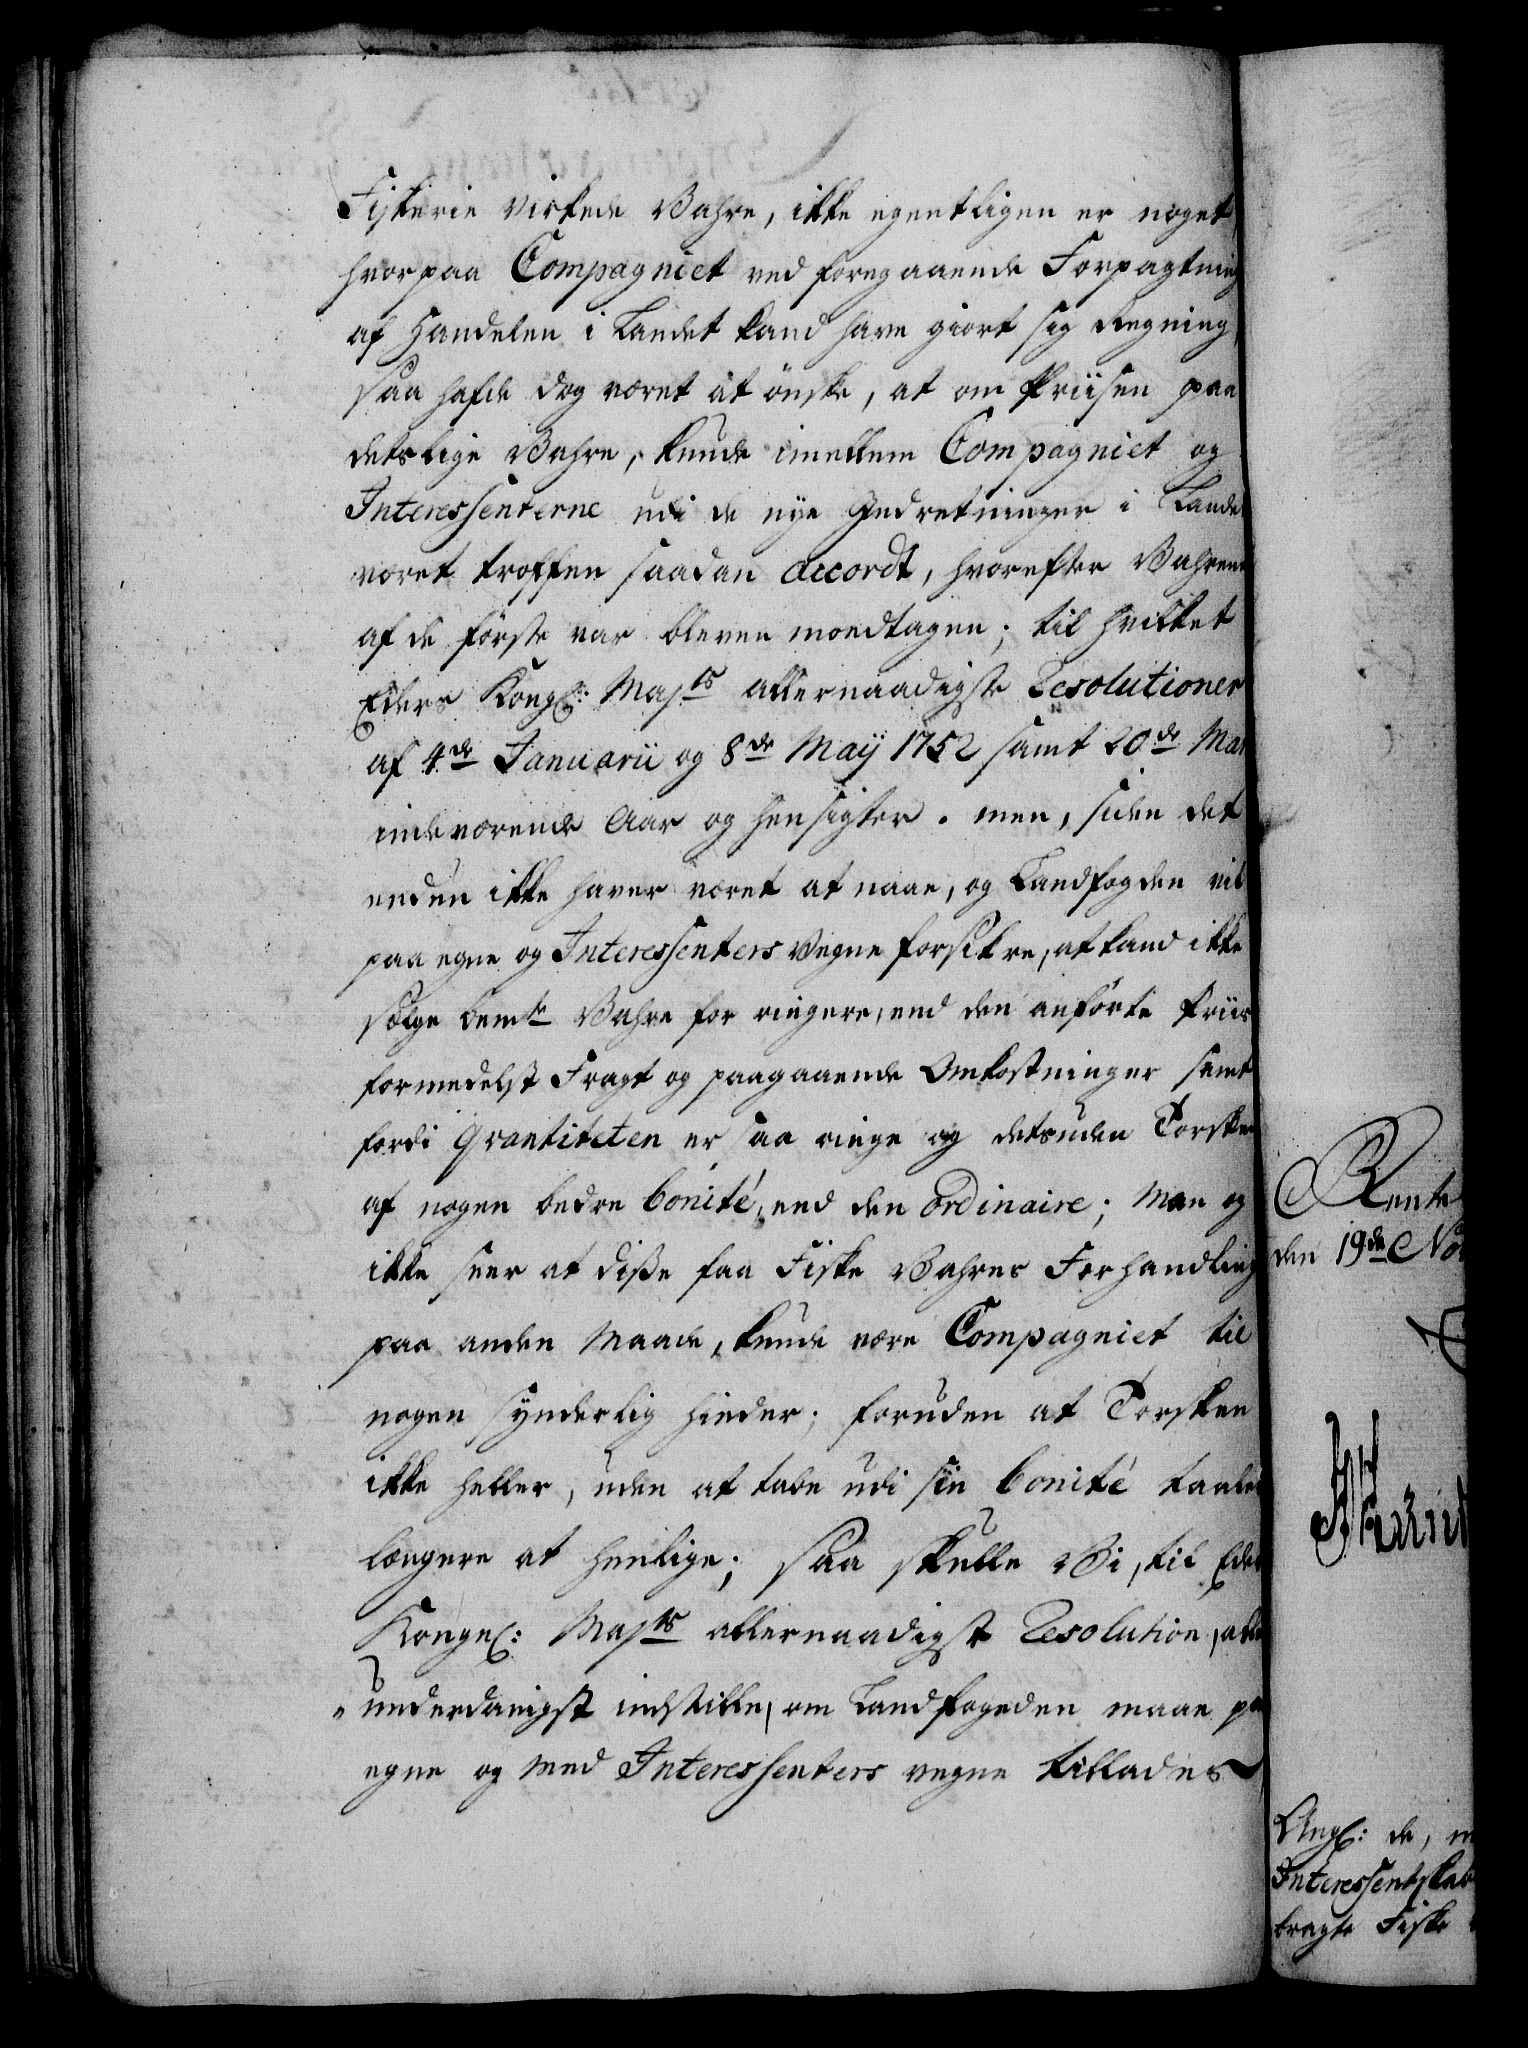 Fiskerie virkede Vahre, ikke egentligen er noget,
hvorpaa Compagniet ved foregaaende Forpagtning
af Handelen i Landet kand have giort sig Regning,
saa hafde dog været at önske, at om Priisen paa
detslige Vahre, kunde imellem Compagniet og
Interessenterne udi de nye Indretninger i Landet
været troffen saadan accordt, hvorefter Vahrene
af de förste var bleven modtagen; til hvilket
Eders Kongl: Majts allernaadigste Resolutioner
af 4de Januarii og 8de Maij 1752 samt 20de Mar
indeværende Aar og hensigter. men, siden det
endnu ikke haver været at naae, og Landfogden vil
paa egne og Interessenters Vegne forsikre, at kand ikke
sælge bemte Vahre for ringere, end den anförte Priis
formedelst Fragt og paagaaende Omkostninger samt
fordi Qvantiteten er saa ringe og desuden Torsken
af nogen bedre bonité, end den ordinaire; Man og
ikke seer at disse faa Fiske Vahres Forhandling
paa anden Maade, kunde være Compagniet til
nogen synderlig hinder; foruden at Torsken
ikke heller, uden at tabe udi sin bonité taaler
længere at henlige; saa skulle Vi, til Eders
Kongel: Majts allernaadigst Resolution, aller
"underdanigst indstille, om Landfogeden maae paa
egne og Med Interessenters vegne tillades
Rente
den 19de Nov
Angl: de, 
Interessentskab
bragte Fiske